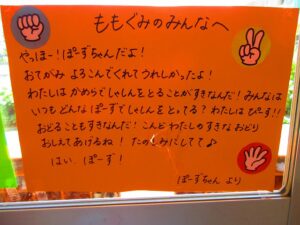 ももぐみのみんなへ
やっほー！ぽーずちゃんだよ！
おてがみ よろこんでくれてうれしかったよ！
わたしは かめらでしゃしんをとることがすきなんだ！みんなは
いつもどんな ぽーずでしゃしんをとってる？わたしは ぴーす！！
おどることもすきなんだ！こんど わたしのすきな おどり
おしえてあげるね！たのしみにしてて♪
はい、ぽーず！
ぽーずちゃん より